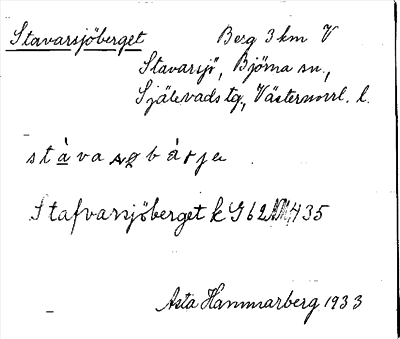 Stavarsjöberget Berg 3 km V
Stavarsjö, Björna sn.,
Själevads tg., Västernorrl. l.
stàvasøbàrje
Stafvarsjöberget k G 62 435
Asta Hammarberg 1933